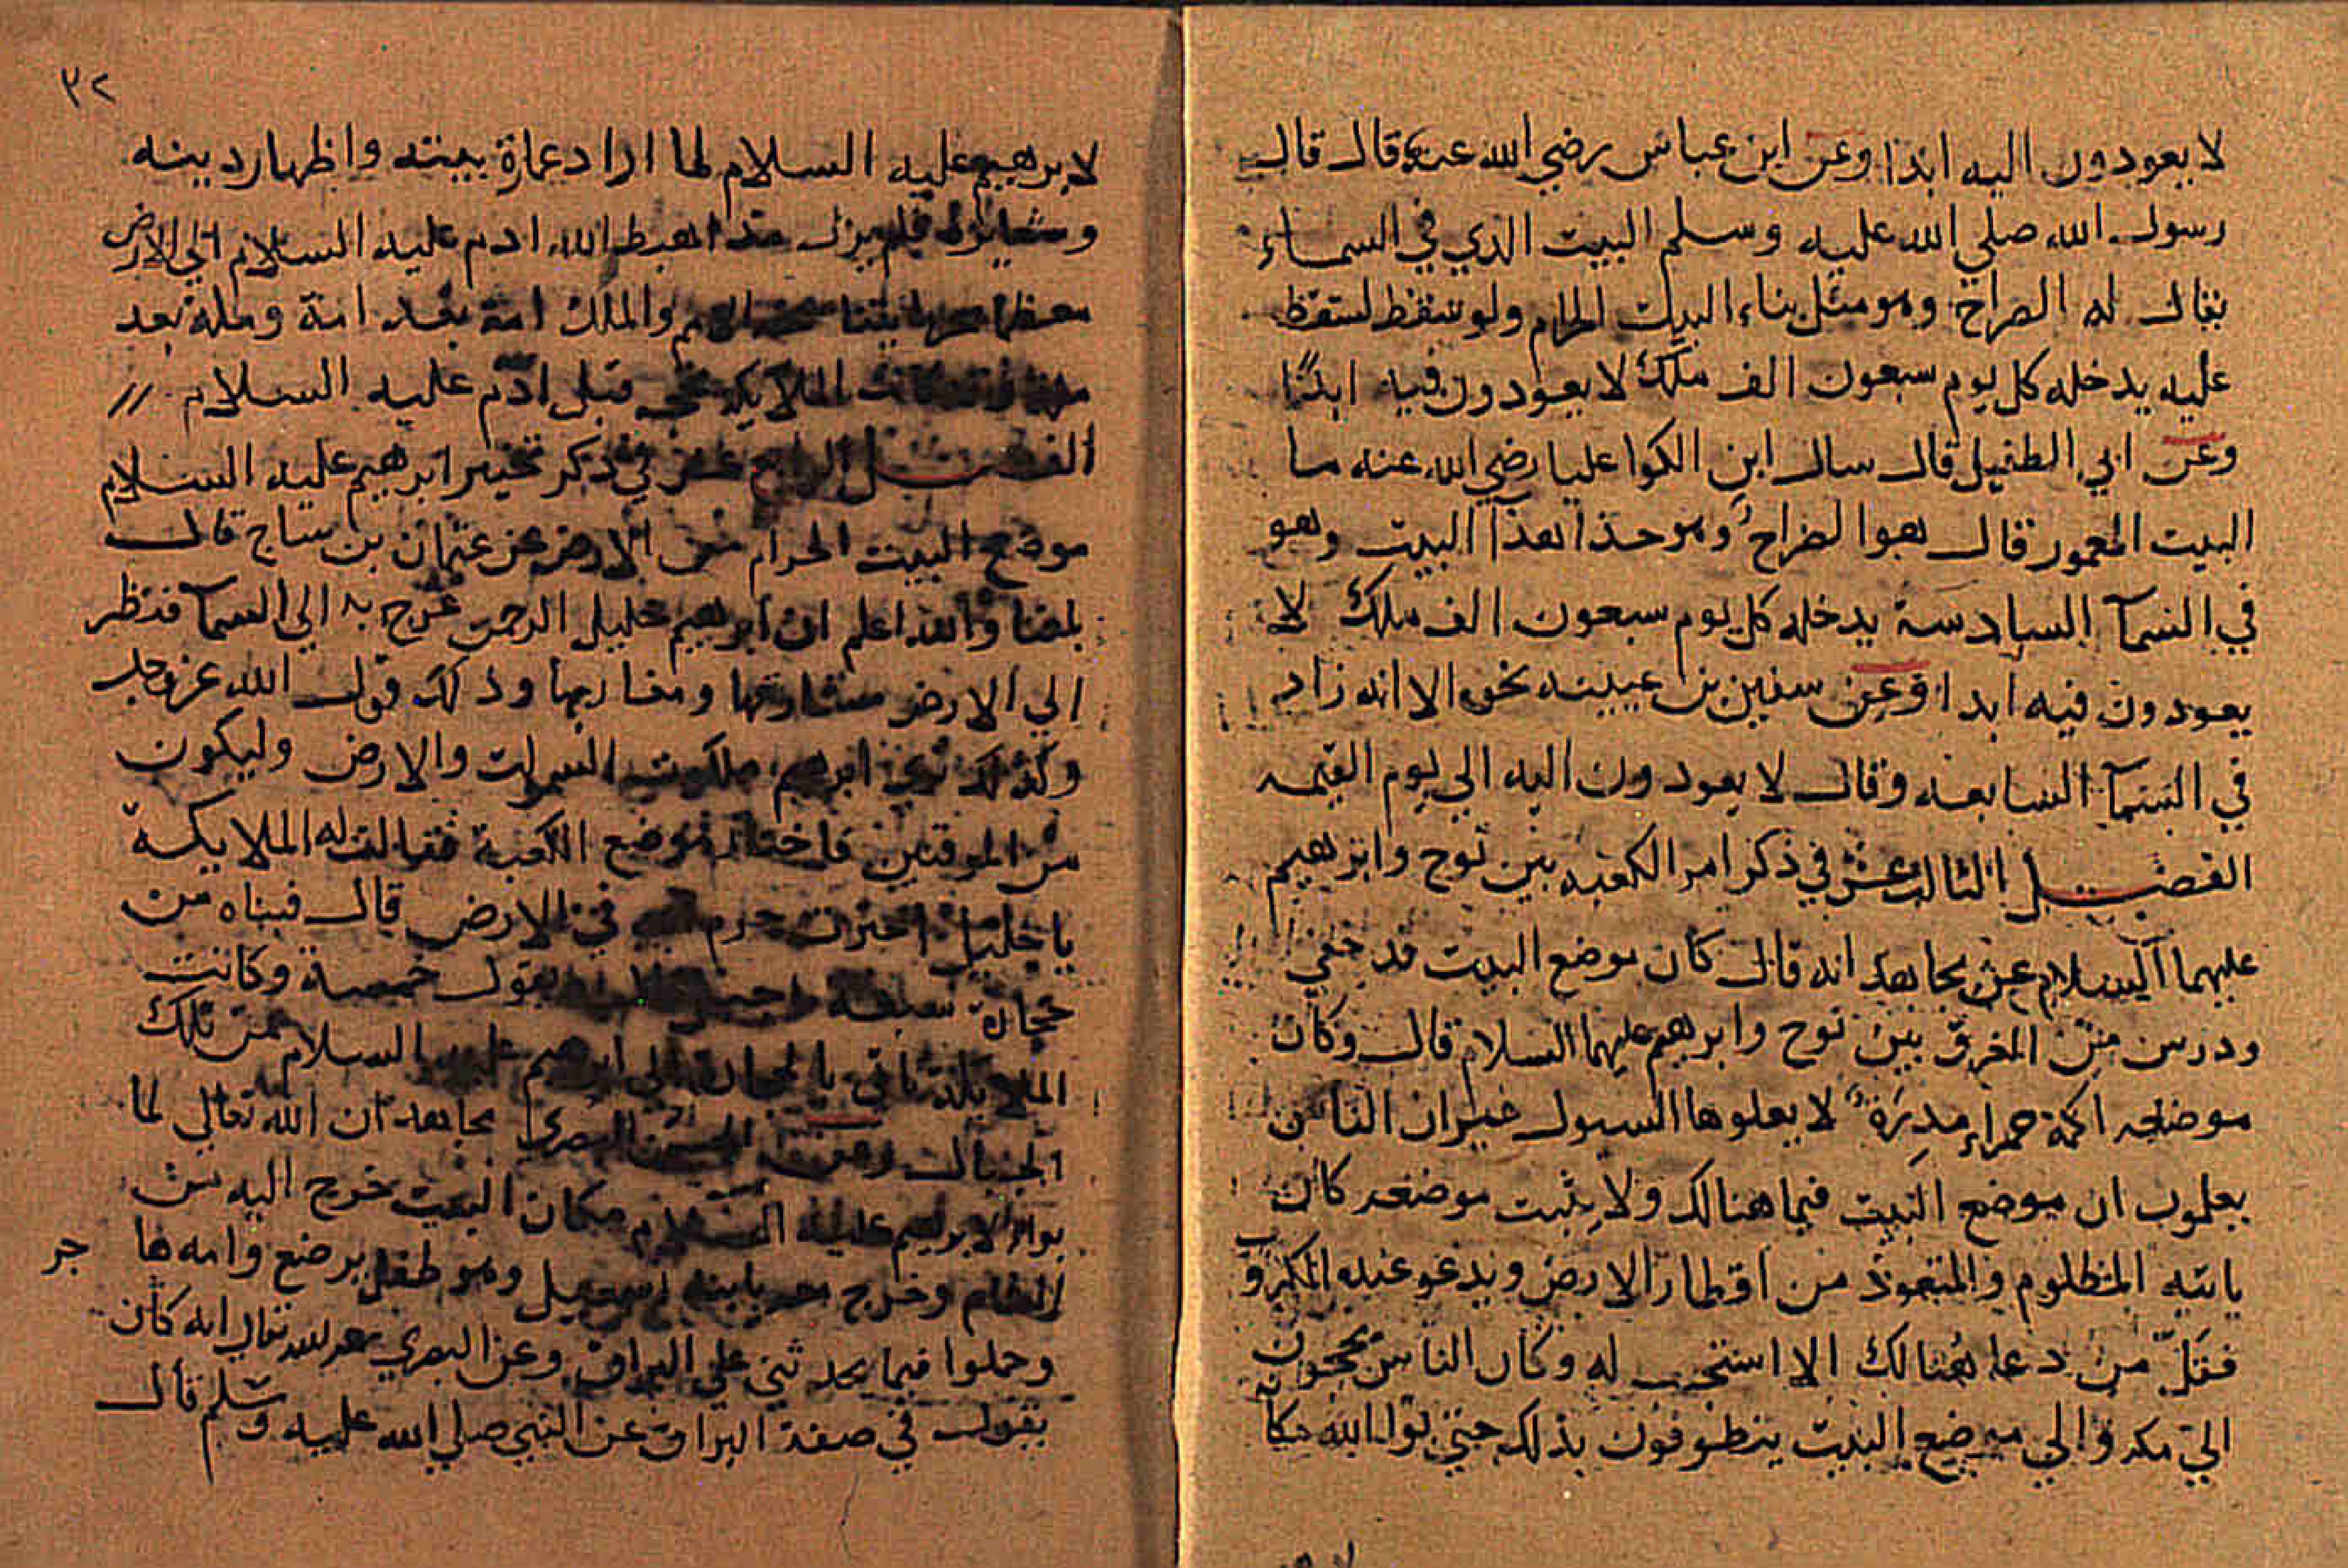 لا يعودون اليه ابدا وعن ابن عباس رضي الله عنه قال قال
رسول الله صلي الله عليه وسلم البيت الذي في السماء
يقال له الضراح وهو مثل بناء البيت الحرام ولو سقط لسقط
عليه يدخله كل يوم سبعون الف ملك لا يعودون فيه ابدا
وعن ابي الطفيل قال سال ابن الكوا عليا رضي الله عنه ما
البيت المعمور قال هو الضراح وهو حذا هذا البيت وهو
في السمآ السادسة يدخله كل يوم سبعون الف ملك لا
يعودون فيه ابدا وعن سفين بن عيينه نحوه الا انه زاد
في السمآ السابعه وقال لا يعودون اليه الي يوم القيمه
الفصل الثالث عشر في ذكر امر الكعبه بين نوح وابرهيم
عليهما السلام عن مجاهد انه قال كان موضع البيت قد خفي
ودرس من الغرق بين نوح وابرهيم عليهما السلام قال وكان
موضعه اكمة حمراء مدرة لا يعلوها السيول غير ان الناس
يعلمون ان موضع البيت فيما هنالك ولا يثبت موضعه كان
ياتيه المظلوم والمتعوذ من اقطار الارض ويدعو عنده المكروب
فقل من دعا هنالك الا استجيب له وكان الناس يحجون
الي مكه والي موضع البيت يتطوفون بذلك حتي بوا الله مكا
٣٢
لابرهيم عليه السلام لما اراد عمارة بيته واظهار دينه
وشعائره فلم يزل منذ اهبط الله ادم عليه السلام الي الارض
معظما والملك امة بعد امة وملة بعد
ملة الملايكة قبل ادم عليه السلام
الفصل الرابع عشر في ذكر تخير ابرهيم عليه السلام
موضع البيت الحرام من الارض عن عثمان بن ساج قال
بلغنا والله اعلم ان ابرهيم خليل الرحمن عرج به الي السمآ فنظر
الي الارض مشارقها ومغاربها وذلك قول الله عز وجل
وكذلك نري ابرهيم ملكوت السموات والارض وليكون
من الموقنين فاختار موضع الكعبة فقالت له الملايكة
يا خليل اخترت حرم في الارض قال فبناه من
حجارة سبعة يقول خمسة وكانت
الملايكة تاتي بالحجارة الي ابرهيم عليه السلام من تلك
الجبال مجاهد ان الله تعالي لما
بوا لابرهيم عليه السلام مكان البيت خرج اليه من
الشام وخرج معه بابنه اسمعيل وهو طفل يرضع وامه ها
جر
وحملوا فيما يحدثني علي البراق وعن البصري انه كان
يقول في صفة البراق عن النبي صلي الله عليه وسلم قال